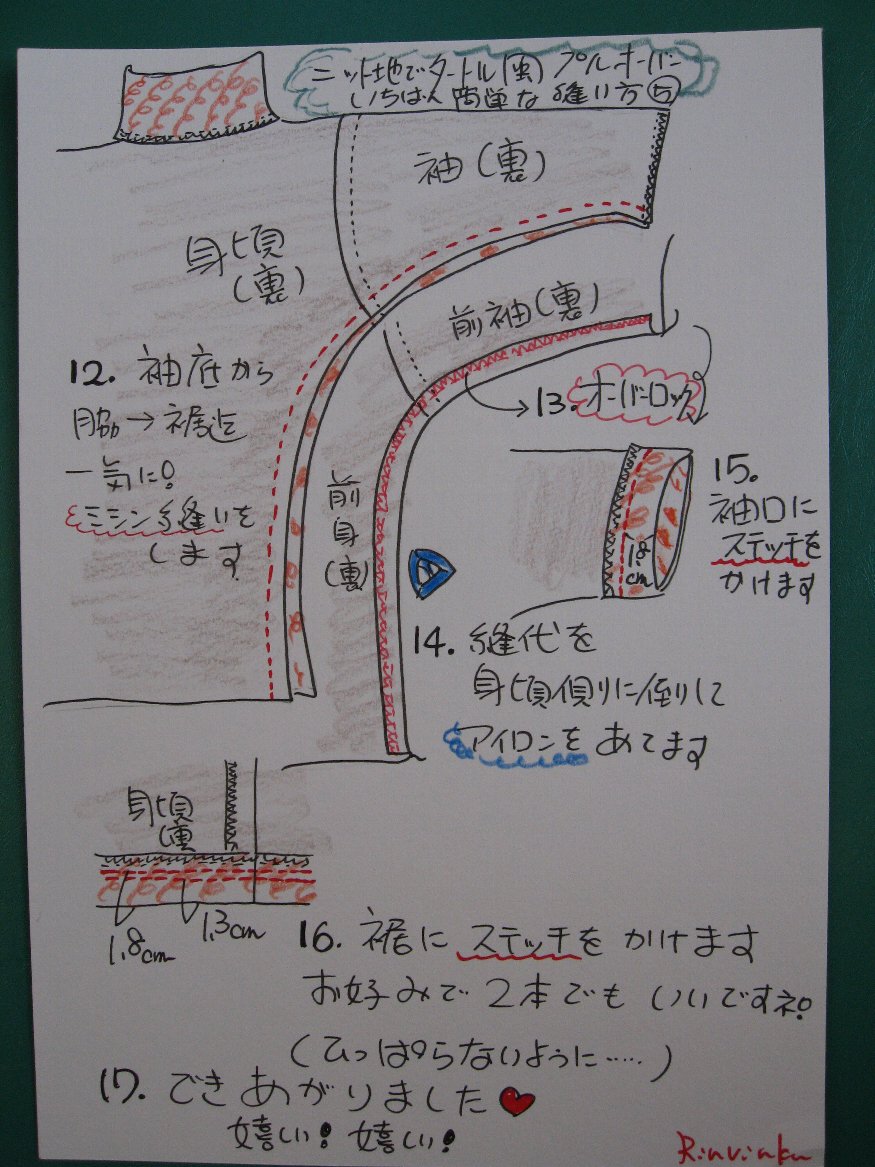 ニット地でタートル(風)プルオーバー
いちばん簡単な縫い方
袖(裏)
身頃
(裏)
前袖(裏)
12. 袖底から
脇→裾迄
一気に!
ミシン縫いを
します
13. オーバーロック
前
身
(裏)
15.
袖口に
ステッチを
かけます
1.8
cm
14. 縫代を
身頃側に倒して
アイロンを あてます
身頃
裏
1.8cm
1.3cm
16. 裾に ステッチを かけます
お好みで 2本でも いいですネ!
(ひっぱらないように……)
17. できあがりました
嬉しい! 嬉しい!